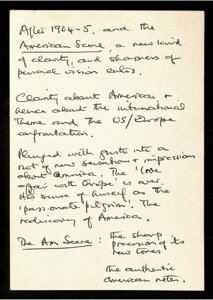 After 1904-5, and the
American Scene, a new kind
of clarity, and sharpness of
personal vision enters.
Clarity about American &
hence about the international
Theme and the US/Europe
confrontation.
Plunged with gusto into a
riot of new sensations & impressions
about America. The 'love
affair with Europe' is over.
His sense of himself as the
'passionate pilgrim'. The
rediscovery of America.
The Am Scene: the sharp
precision of its
new tones
the authentic
American notes.